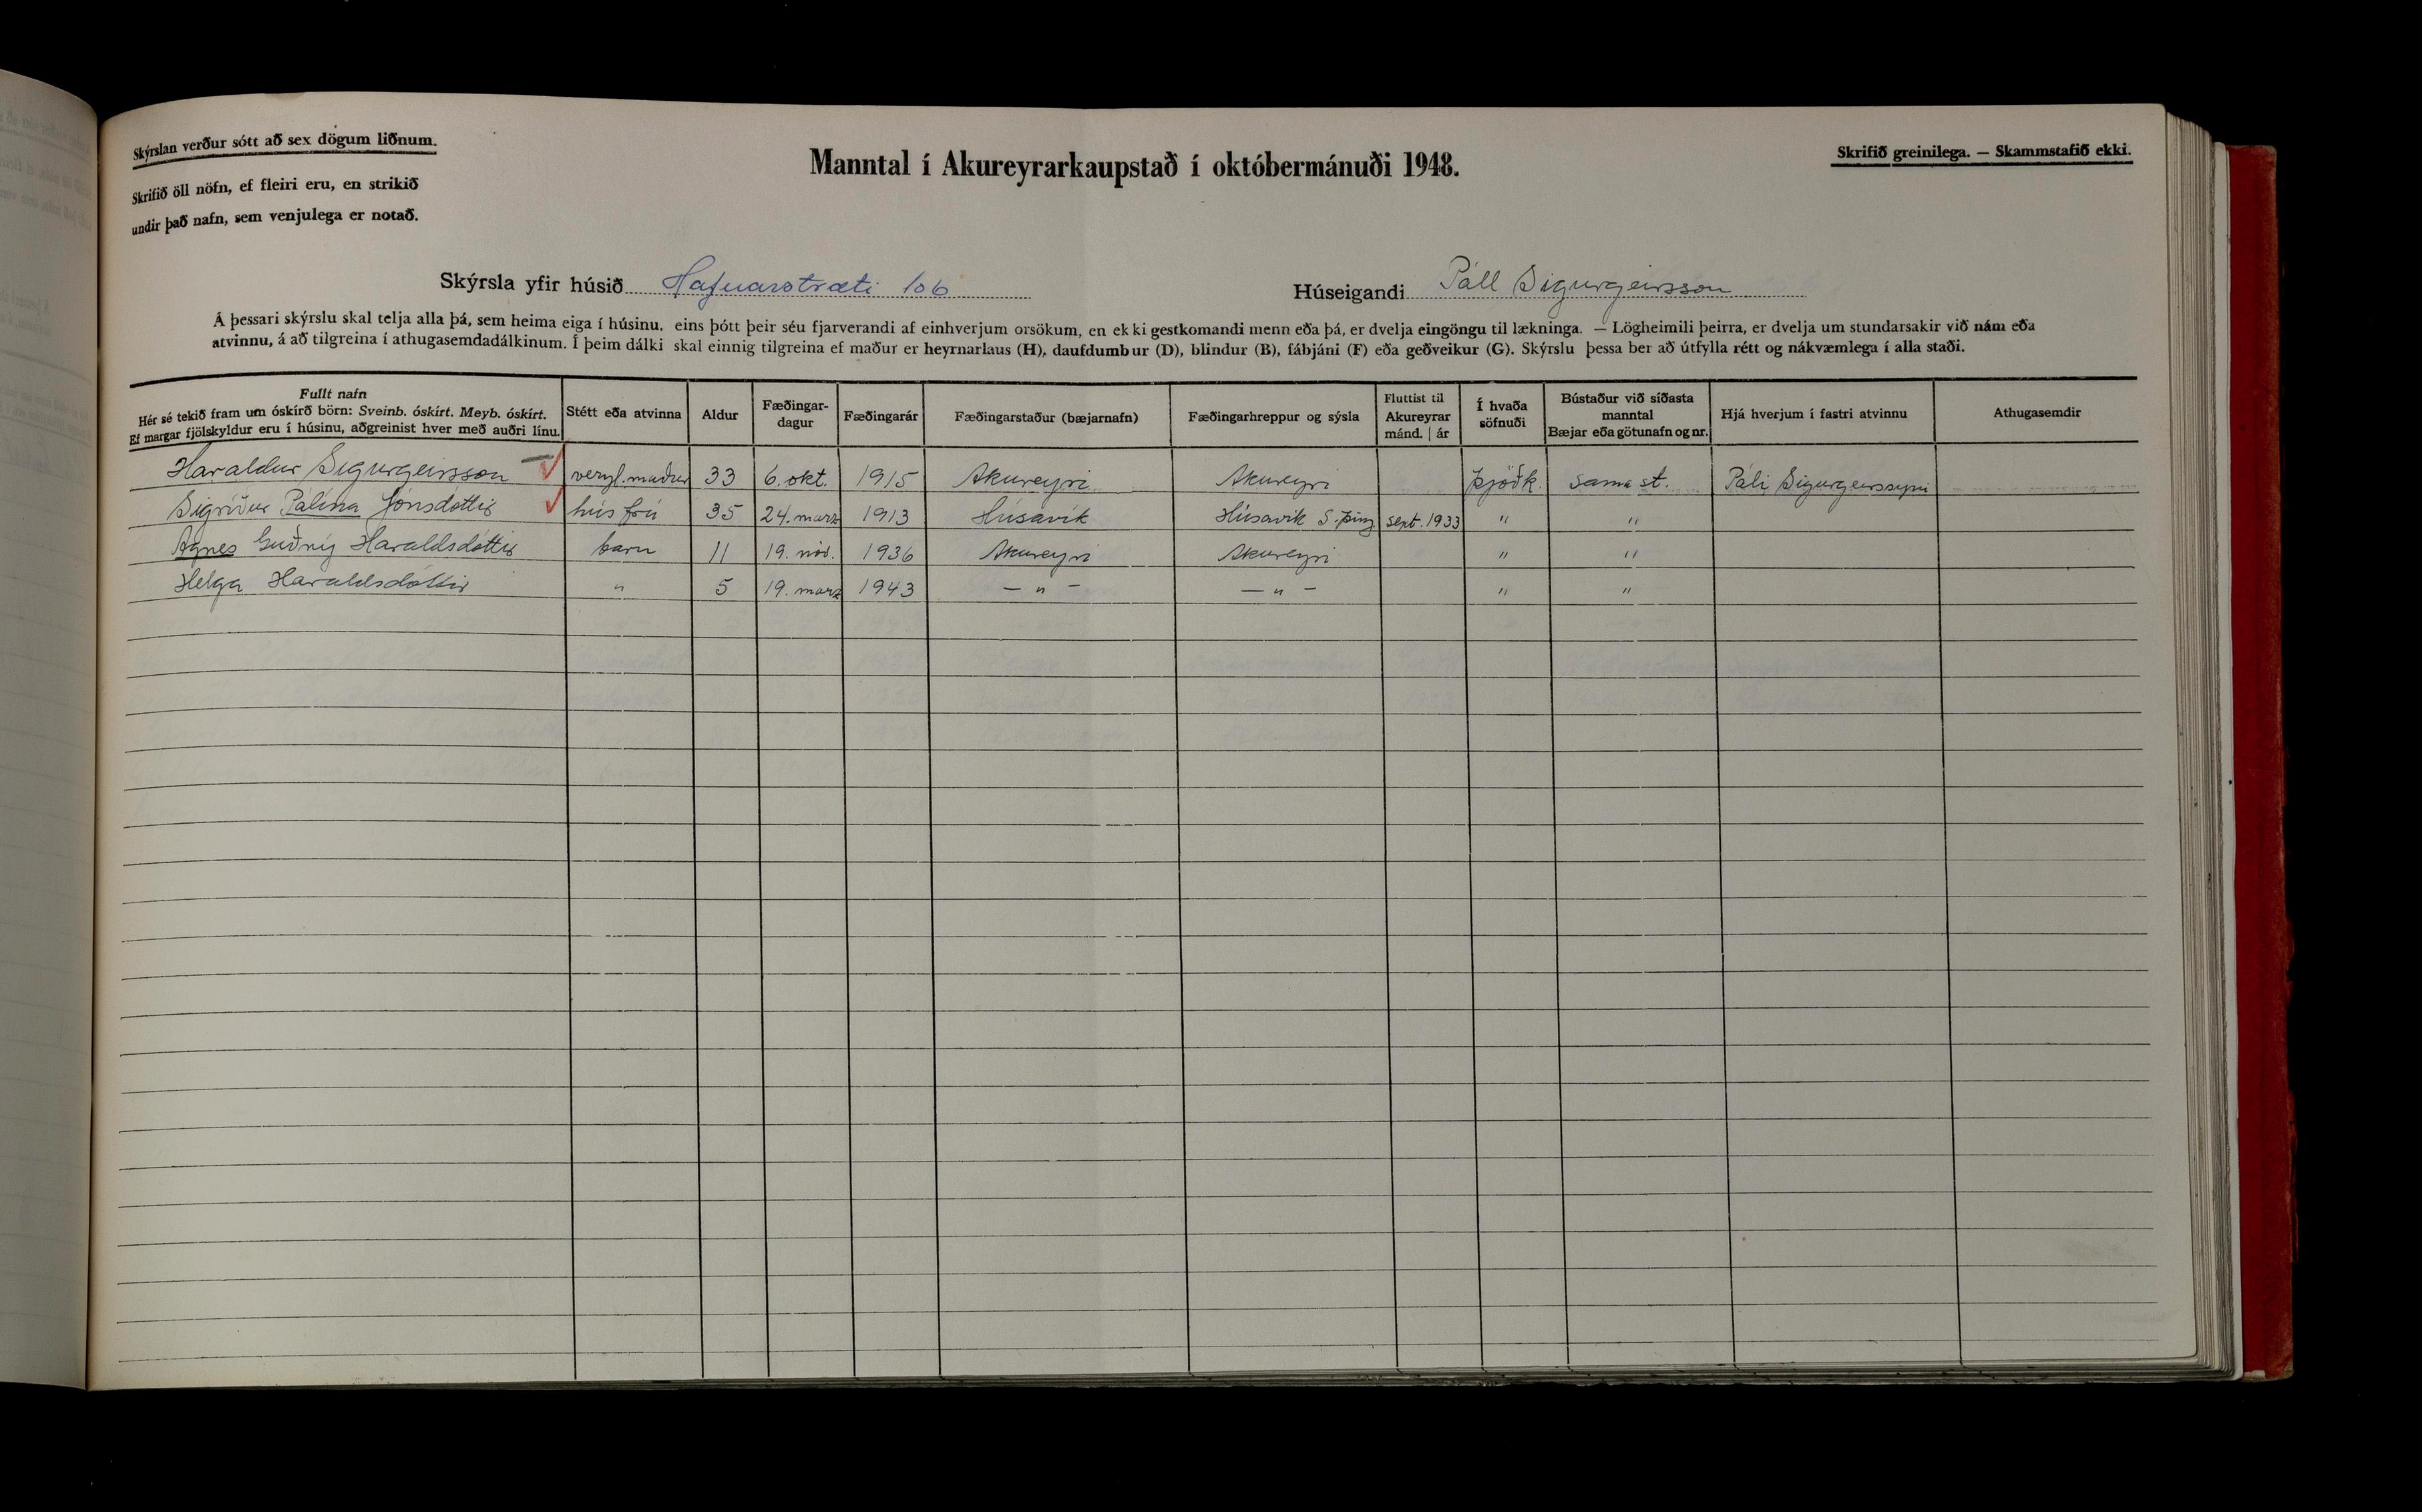 Skýrslan verður sótt að sex dögum liðnum.
Skrifið öll nöfn, ef fleiri eru, en strikið
undir það nafn, sem venjulega er notað.
Manntal í Akureyrarkaupstað í októbermánuði 1948.
Skrifið greinilega. — Skammstafið ekki.
Skýrsla yfir húsið Hafnarstræti 106
Húseigandi Páll Sigurgeirsson
Á þessari skýrslu skal telja alla þá, sem heima eiga í húsinu, eins þótt þeir séu fjarverandi af einhverjum orsökum, en ekki gestkomandi menn eða þá, er dvelja eingöngu til lækninga. — Lögheimili þeirra, er dvelja um stundarsakir við nám eða
atvinnu, á að tilgreina í athugasemdadálkinum. Í þeim dálki skal einnig tilgreina ef maður er heyrnarlaus (H), daufdumbur (D), blindur (B), fábjáni (F) eða geðveikur (G). Skýrslu þessa ber að útfylla rétt og nákvæmlega í alla staði.
Fullt nafn
Hér sé tekið fram um óskírð börn: Sveinb. óskírt. Meyb. óskírt.
Ef margar fjölskyldur eru í húsinu, aðgreinist hver með auðri línu.
Stétt eða atvinna
Aldur
Fæðingar-
dagur
Fæðingarár
Fæðingarstaður (bæjarnafn)
Fæðingarhreppur og sýsla
Fluttist til
Akureyrar
mánd. | ár
Í hvaða
söfnuði
Bústaður við síðasta
manntal
Bæjar eða götunafn og nr.
Hjá hverjum í fastri atvinnu
Athugasemdir
Haraldur Sigurgeirsson verzl.maður 33 6. okt. 1915 Akureyri Akureyri Þjóðk. sama st. Páli Sigurgeirssyni
Sigríður Pálína Jónsdóttir húsfrú 35 24. marz 1913 Húsavík Húsavík S.þing sept. 1933 " "
Agnes Guðný Haraldsdóttir barn 11 19. nóv. 1936 Akureyri Akureyri " "
Helga Haraldsdóttir " 5 19. marz 1943 — " — — " — " "